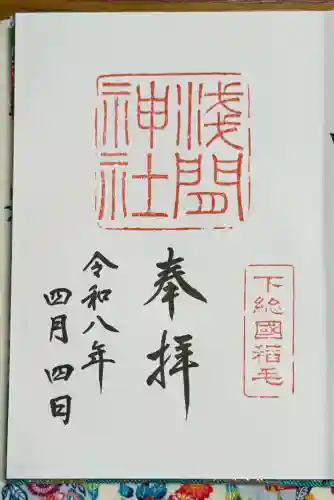 下総國稻毛
浅間
神社
奉拝
令和八年
四月四日